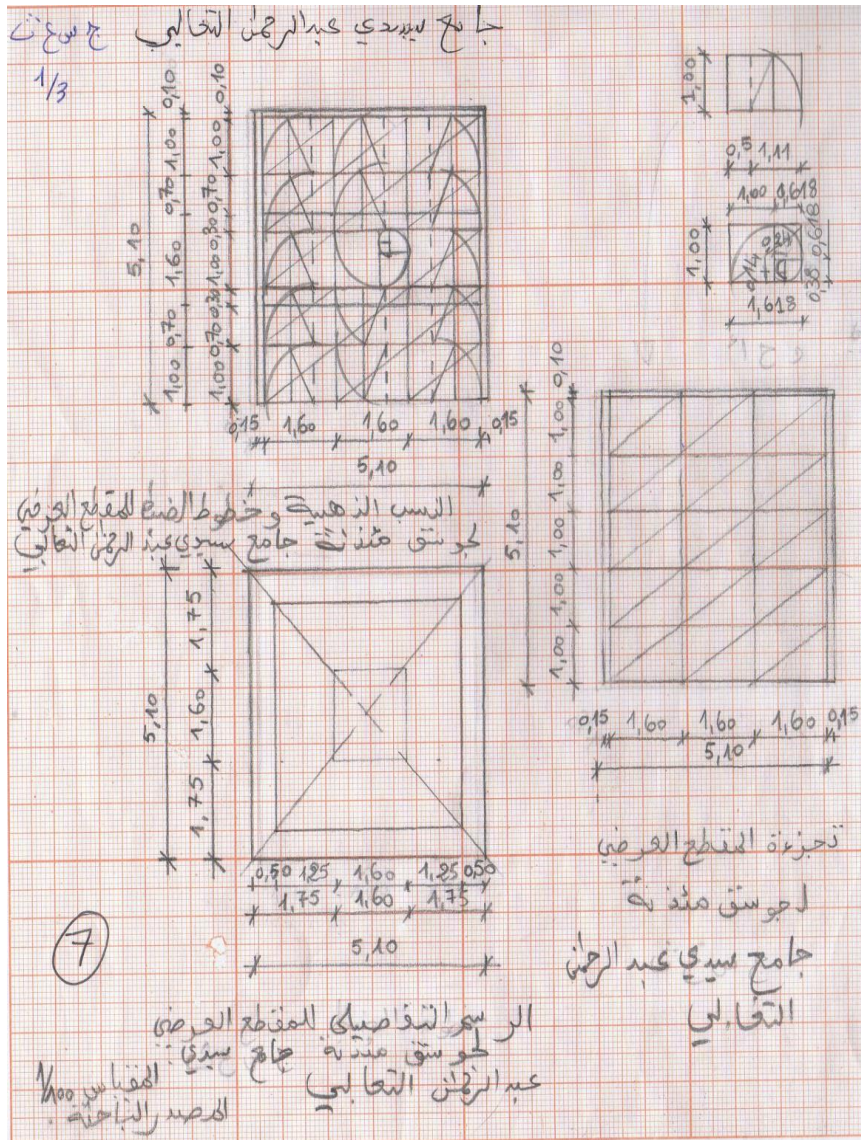 جامع سيدي عبد الرحمٰن الثعالبي ج س ع ث
1/3
5,10
1,00 0,70 1,60 0,70 1,00 0,10
1,00 0,70 0,30 1,00 0,30 0,70 1,00 0,10
0,15 1,60 1,60 1,60 0,15
5,10
1,00
0,5 1,11
1,00 0,618
1,00
0,14 0,24
0,38 0,618
1,618
النسب الذهبية وخطوط الضبط للمقطع العرضي
لجوسق مئذنة جامع سيدي عبد الرحمٰن الثعالبي
5,10
1,00 1,00 1,00 1,00 1,00 0,10
0,15 1,60 1,60 1,60 0,15
5,10
تجزءة المقطع العرضي
لجوسق مئذنة
جامع سيدي عبد الرحمٰن
الثعالبي
5,10
1,75 1,60 1,75
0,50 1,25 1,60 1,25 0,50
1,75 1,60 1,75
5,10
7
الرسم التفاصيلي للمقطع العرضي
لجوسق مئذنة جامع سيدي
عبد الرحمٰن الثعالبي
المقياس 1/100
المصدر الباحثة